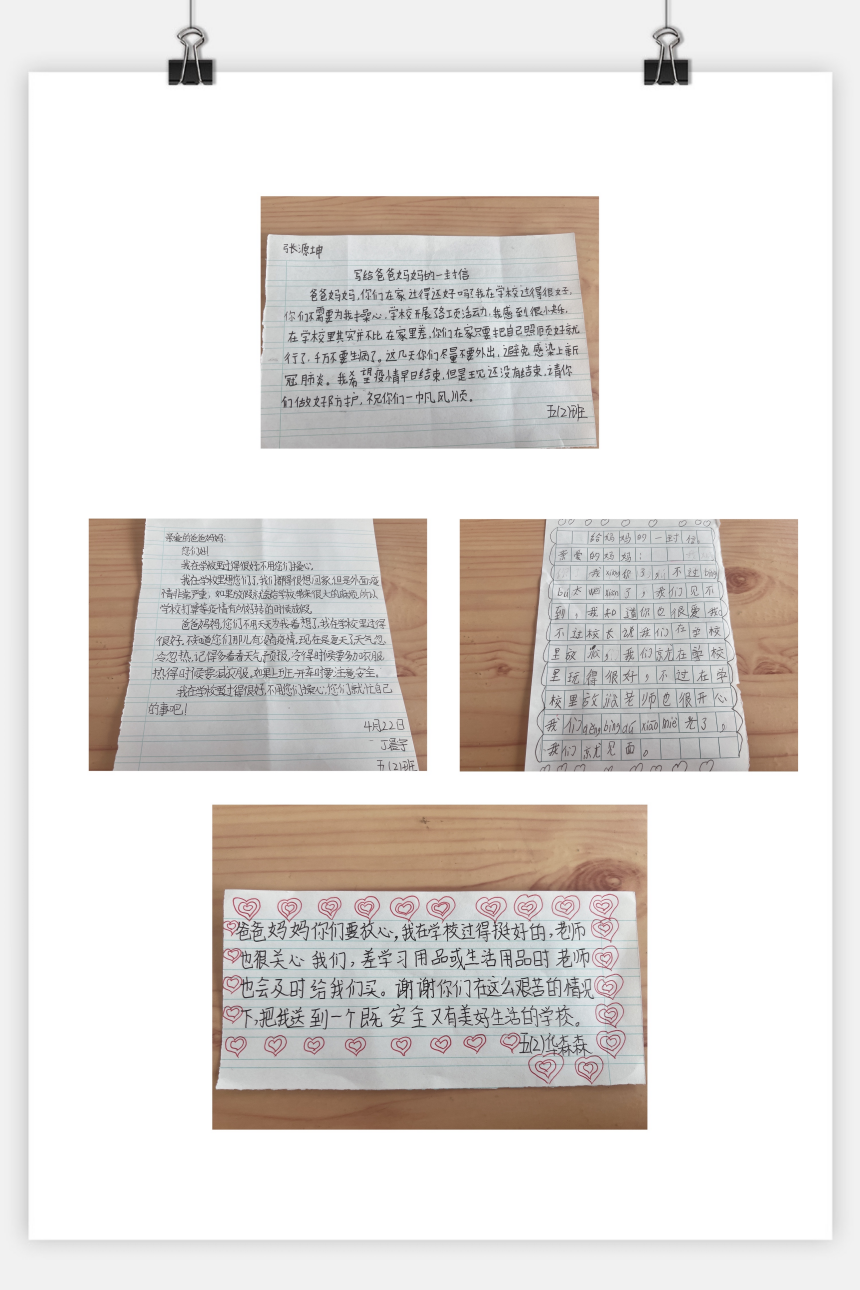 张源坤
写给爸爸妈妈的一封信
爸爸妈妈,你们在家过得还好吗?我在学校过得很好,
你们不需要为我担心,学校开展各项活动,我感到很快乐,
在学校里其实并不比在家里差,你们在家只要把自己照顾好就
行了,千万不要生病了。这几天你们尽量不要外出,避免感染上新
冠肺炎。我希望疫情早日结束,但是现还没有结束,请你
们做好防护,祝你们一帆风顺。
五(2)班
亲爱的爸爸妈妈:
您们好!
我在学校里过得很好,不用您们操心。
我在学校里想您们了,我们都得很想回家,但是外面疫
情非常严重,如果放假就会给学校带来很大的麻烦,所以
学校打算等疫情有所好转的时候放假。
爸爸妈妈,您们不用天天为我着想了,我在学校里过得
很好,不知道您们那儿有没有疫情,现在是夏天了,天气忽
冷忽热,记得多看看天气预报,冷得时候要多加衣服,
热得时候要减衣服,如果上班开车时要注意安全。
我在学校里过得很好,不用您们操心,您们就忙自己
的事吧!
4月22日
五(2)班
给妈妈的一封信
亲爱的妈妈:
我xiǎng你了,不过bìng
dú太 了,我们见不
到,我知道你也很爱我
不过校长说我们在学校
里放假,我们就在学校
里玩得很好,不过在学
校里放假老师也很开心
我们děng bìng dú xiāo miè 完了,
我们就见面。
爸爸妈妈你们要放心,我在学校过得挺好的,老师
也很关心我们,差学习用品或生活用品时老师
也会及时给我们买。谢谢你们在这么艰苦的情况
下,把我送到一个既安全又有美好生活的学校。
五(2)华森森